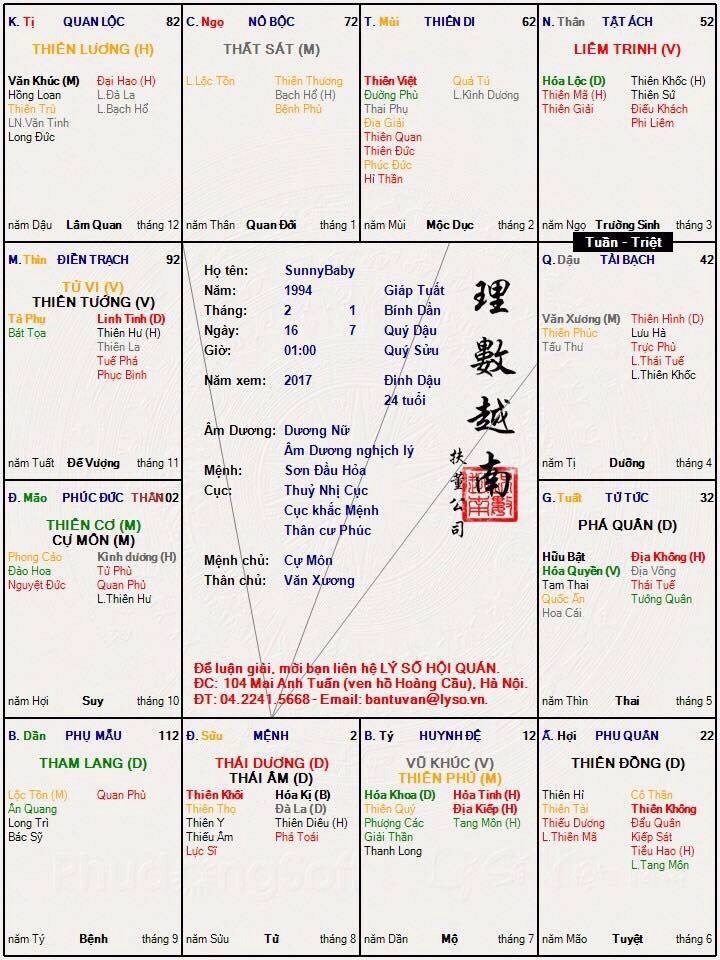 K. Tị QUAN LỘC 82
THIÊN LƯƠNG (H)
Văn Khúc (M) Đại Hao (H)
Hồng Loan L.Đà La
Thiên Trù L.Bạch Hổ
LN.Văn Tinh
Long Đức
năm Dậu Lâm Quan tháng 12
C. Ngọ NÔ BỘC 72
THẤT SÁT (M)
L.Lộc Tồn Thiên Thương
Bạch Hổ (H)
Bệnh Phù
năm Thân Quan Đới tháng 1
T. Mùi THIÊN DI 62
Thiên Việt Quả Tú
Đường Phù L.Kình Dương
Thai Phụ
Địa Giải
Thiên Quan
Thiên Đức
Phúc Đức
Hỉ Thần
năm Mùi Mộc Dục tháng 2
N. Thân TẬT ÁCH 52
LIÊM TRINH (V)
Hóa Lộc (D) Thiên Khốc (H)
Thiên Mã (H) Thiên Sứ
Thiên Giải Điếu Khách
Phi Liêm
năm Ngọ Trường Sinh tháng 3
Tuần - Triệt
M. Thìn ĐIỀN TRẠCH 92
TỬ VI (V)
THIÊN TƯỚNG (V)
Tả Phụ Linh Tinh (D)
Bát Tọa Thiên Hư (H)
Thiên La
Tuế Phá
Phục Binh
năm Tuất Đế Vượng tháng 11
Họ tên: SunnyBaby
Năm: 1994 Giáp Tuất
Tháng: 2 1 Bính Dần
Ngày: 16 7 Quý Dậu
Giờ: 01:00 Quý Sửu
Năm xem: 2017 Đinh Dậu
24 tuổi
Âm Dương: Dương Nữ
Âm Dương nghịch lý
Mệnh: Sơn Đầu Hỏa
Cục: Thuỷ Nhị Cục
Cục khắc Mệnh
Thân cư Phúc
Mệnh chủ: Cự Môn
Thân chủ: Văn Xương
理數越南
扶董公司
Để luận giải, mời bạn liên hệ LÝ SỐ HỘI QUÁN.
ĐC: 104 Mai Anh Tuấn (ven hồ Hoàng Cầu), Hà Nội.
ĐT: 04.2241.5668 - Email: bantuvan@lyso.vn.
Q. Dậu TÀI BẠCH 42
Văn Xương (M) Thiên Hình (D)
Thiên Phúc Lưu Hà
Tấu Thư Trực Phù
L.Thái Tuế
L.Thiên Khốc
năm Tị Dưỡng tháng 4
Đ. Mão PHÚC ĐỨC THÂN 102
THIÊN CƠ (M)
CỰ MÔN (M)
Phong Cáo Kình dương (H)
Đào Hoa Tử Phù
Nguyệt Đức Quan Phủ
L.Thiên Hư
năm Hợi Suy tháng 10
G. Tuất TỬ TỨC 32
PHÁ QUÂN (D)
Hữu Bật Địa Không (H)
Hóa Quyền (V) Địa Võng
Tam Thai Thái Tuế
Quốc Ấn Tướng Quân
Hoa Cái
năm Thìn Thai tháng 5
B. Dần PHỤ MẪU 112
THAM LANG (D)
Lộc Tồn (M) Quan Phù
Ân Quang
Long Trì
Bác Sỹ
năm Tý Bệnh tháng 9
Đ. Sửu MỆNH 2
THÁI DƯƠNG (D)
THÁI ÂM (D)
Thiên Khôi Hóa Kị (B)
Thiên Thọ Đà La (D)
Thiên Y Thiên Diêu (H)
Thiếu Âm Phá Toái
Lực Sĩ
năm Sửu Tử tháng 8
B. Tý HUYNH ĐỆ 12
VŨ KHÚC (V)
THIÊN PHỦ (M)
Hóa Khoa (D) Hỏa Tinh (H)
Thiên Quý Địa Kiếp (H)
Phượng Các Tang Môn (H)
Giải Thần
Thanh Long
năm Dần Mộ tháng 7
Ấ. Hợi PHU QUÂN 22
THIÊN ĐỒNG (D)
Thiên Hỉ Cô Thần
Thiên Tài Thiên Không
Thiếu Dương Đẩu Quân
L.Thiên Mã Kiếp Sát
Tiểu Hao (H)
L.Tang Môn
năm Mão Tuyệt tháng 6